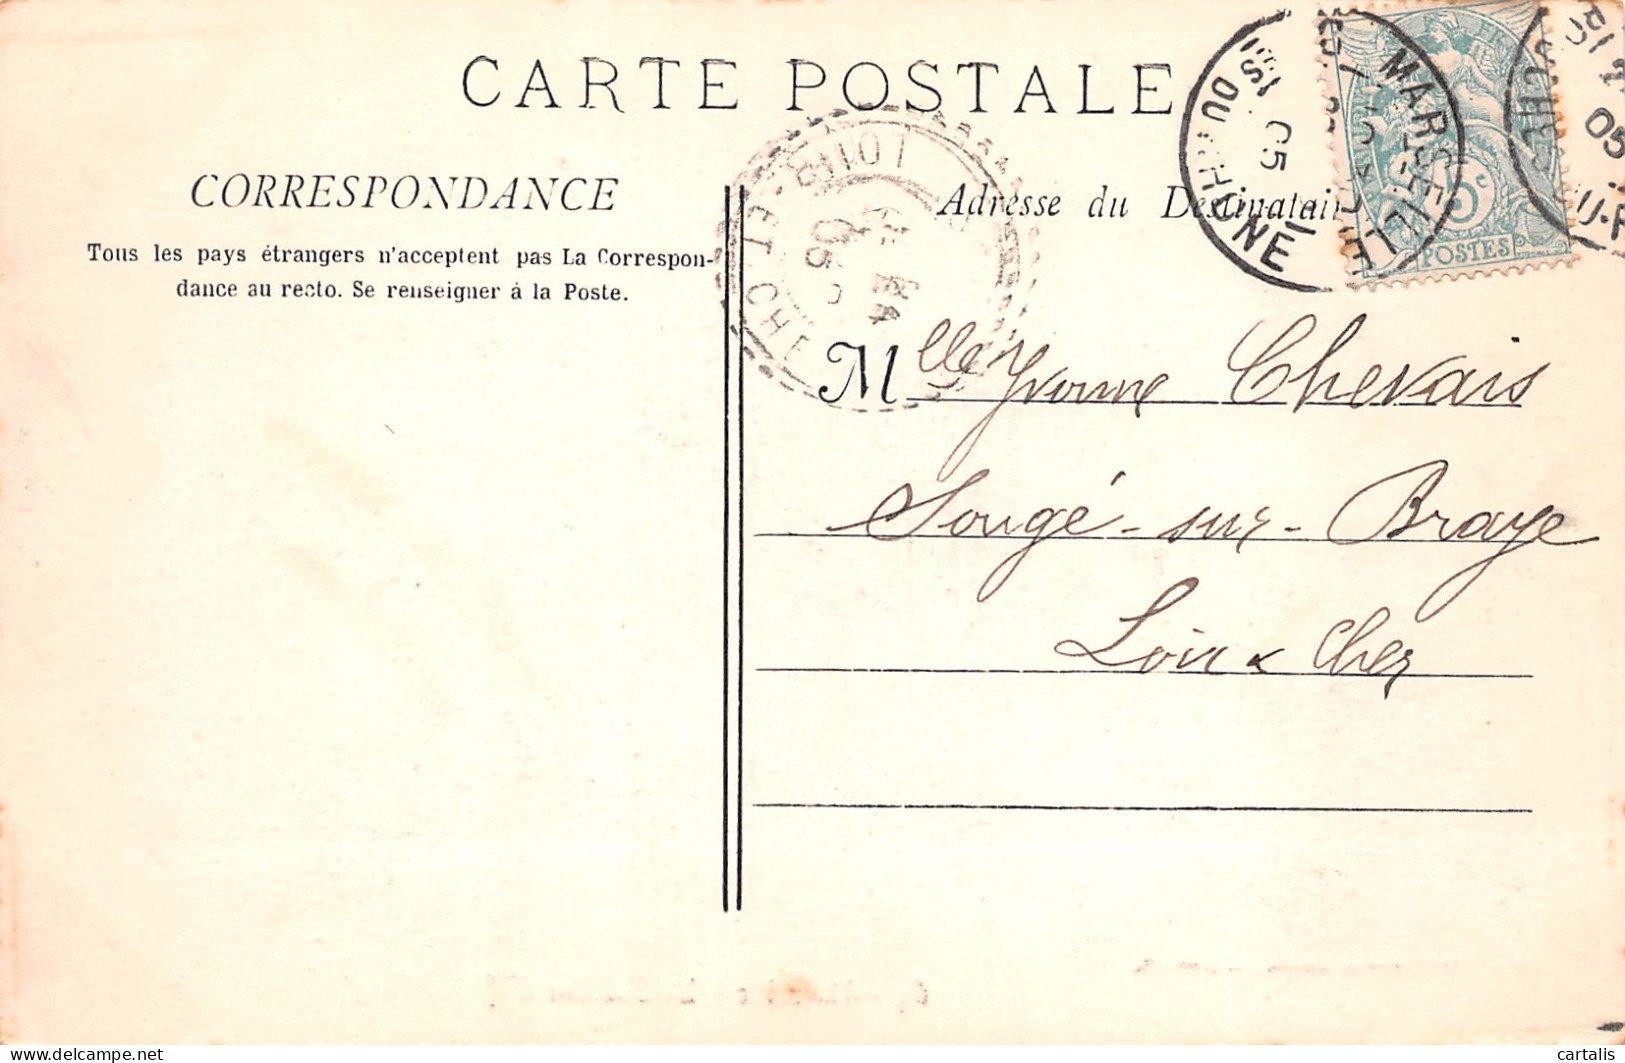 CARTE POSTALE
CORRESPONDANCE
Tous les pays étrangers n'acceptent pas La Correspon-
dance au recto. Se renseigner à la Poste.
Adresse du Destinatai
MARSEILLE
DU RHONE
05
5c
POSTES
LOIR-ET-CHE
05
Mlle Yvonne Chevais
Sougé-sur-Braye
Loir & Cher
www.delcampe.net
cartalis